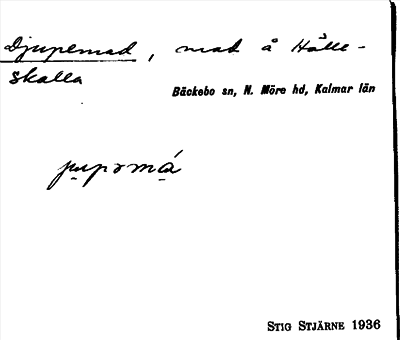 Djupemad, mad å Hälle-
skalla
Bäckebo sn, N. Möre hd, Kalmar län
jupɘmá
STIG STJÄRNE 1936